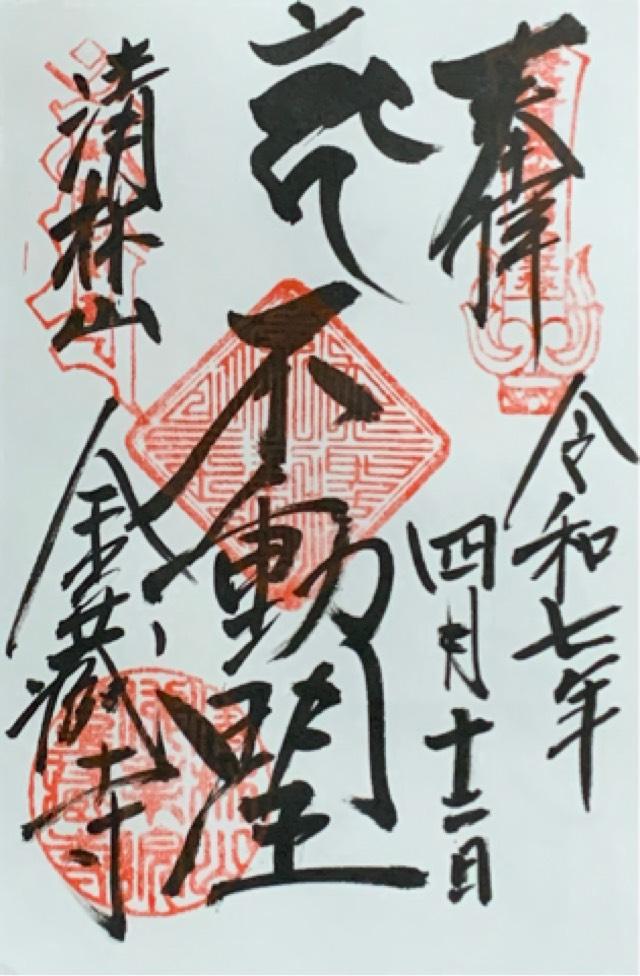 奉拝
令和七年
四月十二日
不動明王
清林山
金蔵寺